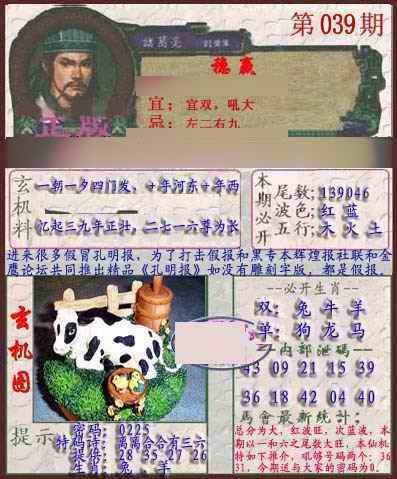 第039期
諸葛亮
稳赢
宜：宜双，吼大
忌：左二右九
正版
玄机料
一朝一夕四门发，十年河东十年西
忆起三九年正壮，二七一六尊为长
本期必开
尾数：139046
波色：红 蓝
五行：木 火 土
进来很多假冒孔明报，为了打击假报和黑专本辉煌报社联和金
鹰论坛共同推出精品《孔明报》如没有雕刻字版，都是假报。
玄机图
—必开生肖—
双：兔 牛 羊
单：狗 龙 马
内部泄码
43 09 21 15 39
36 18 42 04 40
馬會最新統計：
总分为大，红波旺，次蓝波，本
期以一和六之尾数大旺，本仙机
特如下推介，吼够号码两个：36
31，今期送与大家的密码为0。
提示
密码：0225
特码诗：离离合合有三六
提供：28 35 27 26
生肖：兔、羊